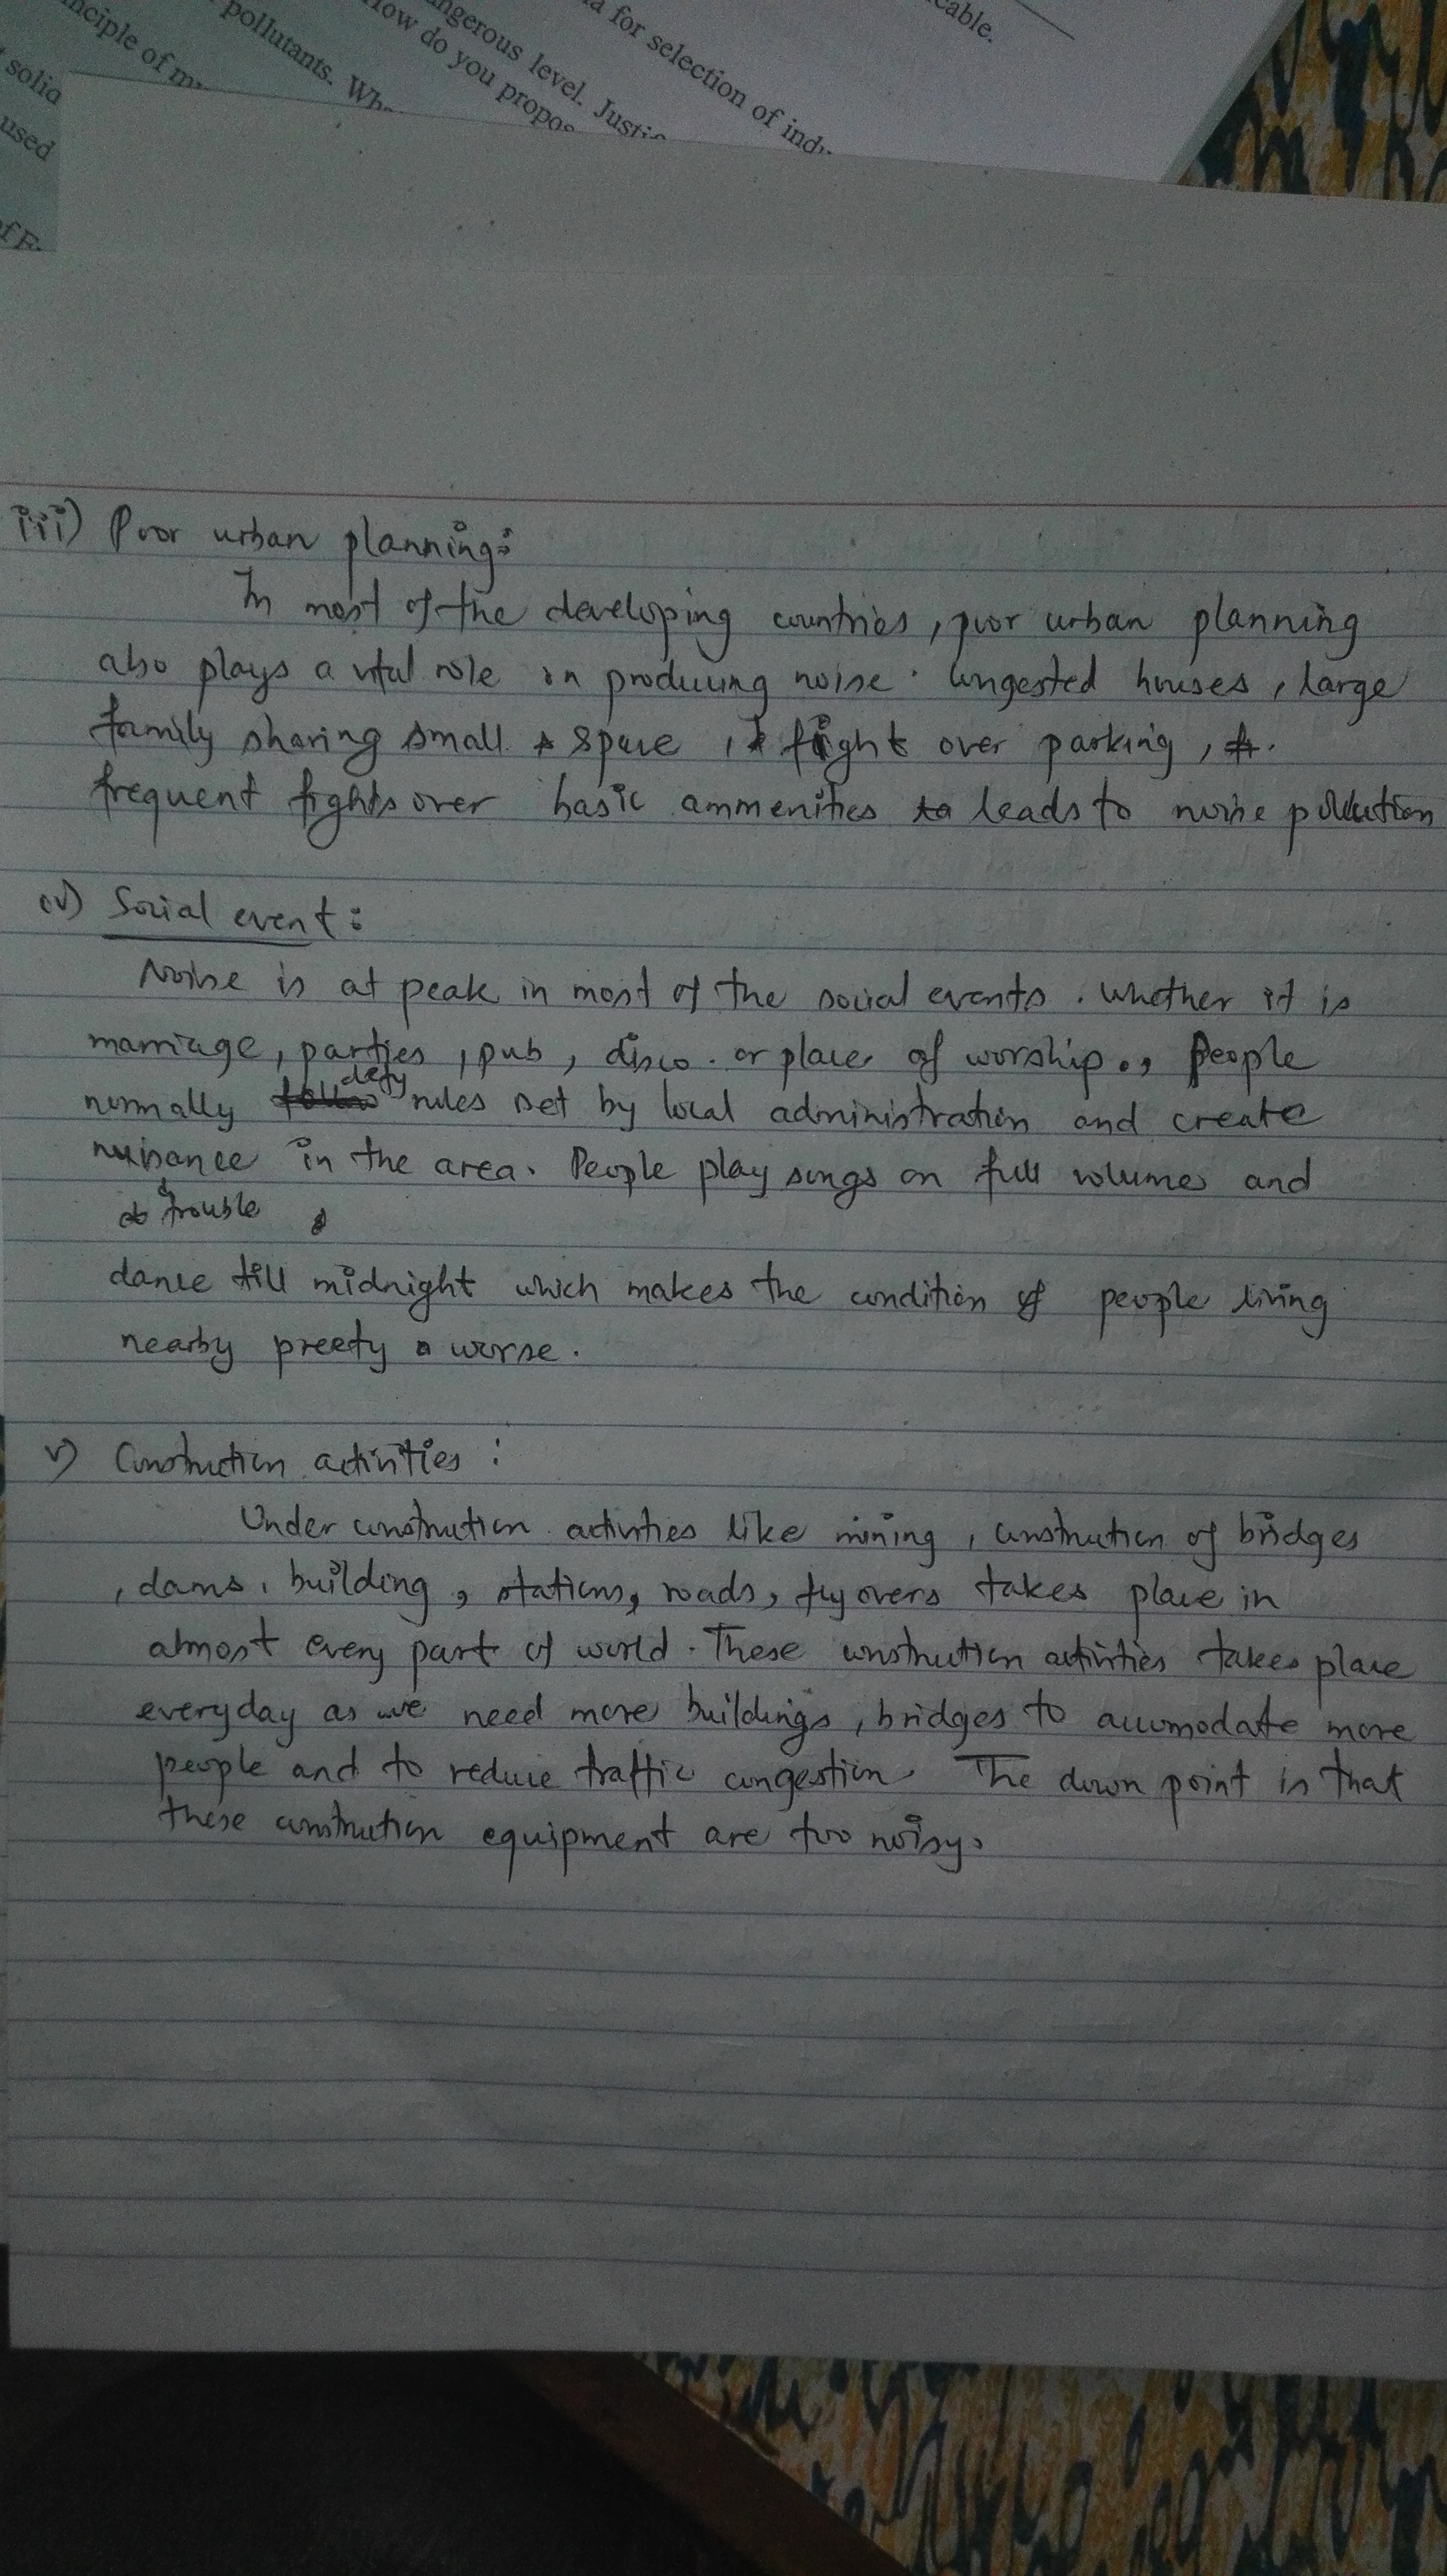 nciple of
pollutants.
How do you propos
ngerous level.
a for selection of
cable.
solid
used
iii) Poor urban planning:
In most of the developing countries, poor urban planning
also plays a vital role in producing noise. Congested houses, large
family sharing small space, fight over parking,
frequent fights over basic ammenities leads to noise pollution
iv) Social event:
Noise is at peak in most of the social events. Whether it is
marriage, parties, pub, disco. or place of worship., People
defy
normally follow rules set by local administration and create
nuisance in the area. People play songs on full volume and
trouble
dance till midnight which makes the condition of people living
nearby preety worse.
v) Construction activities:
Under construction activities like mining, construction of bridges
, dams, building, stations, roads, flyovers takes place in
almost every part of world. These construction activities takes place
everyday as we need more buildings, bridges to accomodate more
people and to reduce traffic congestion. The down point is that
these construction equipment are too noisy.